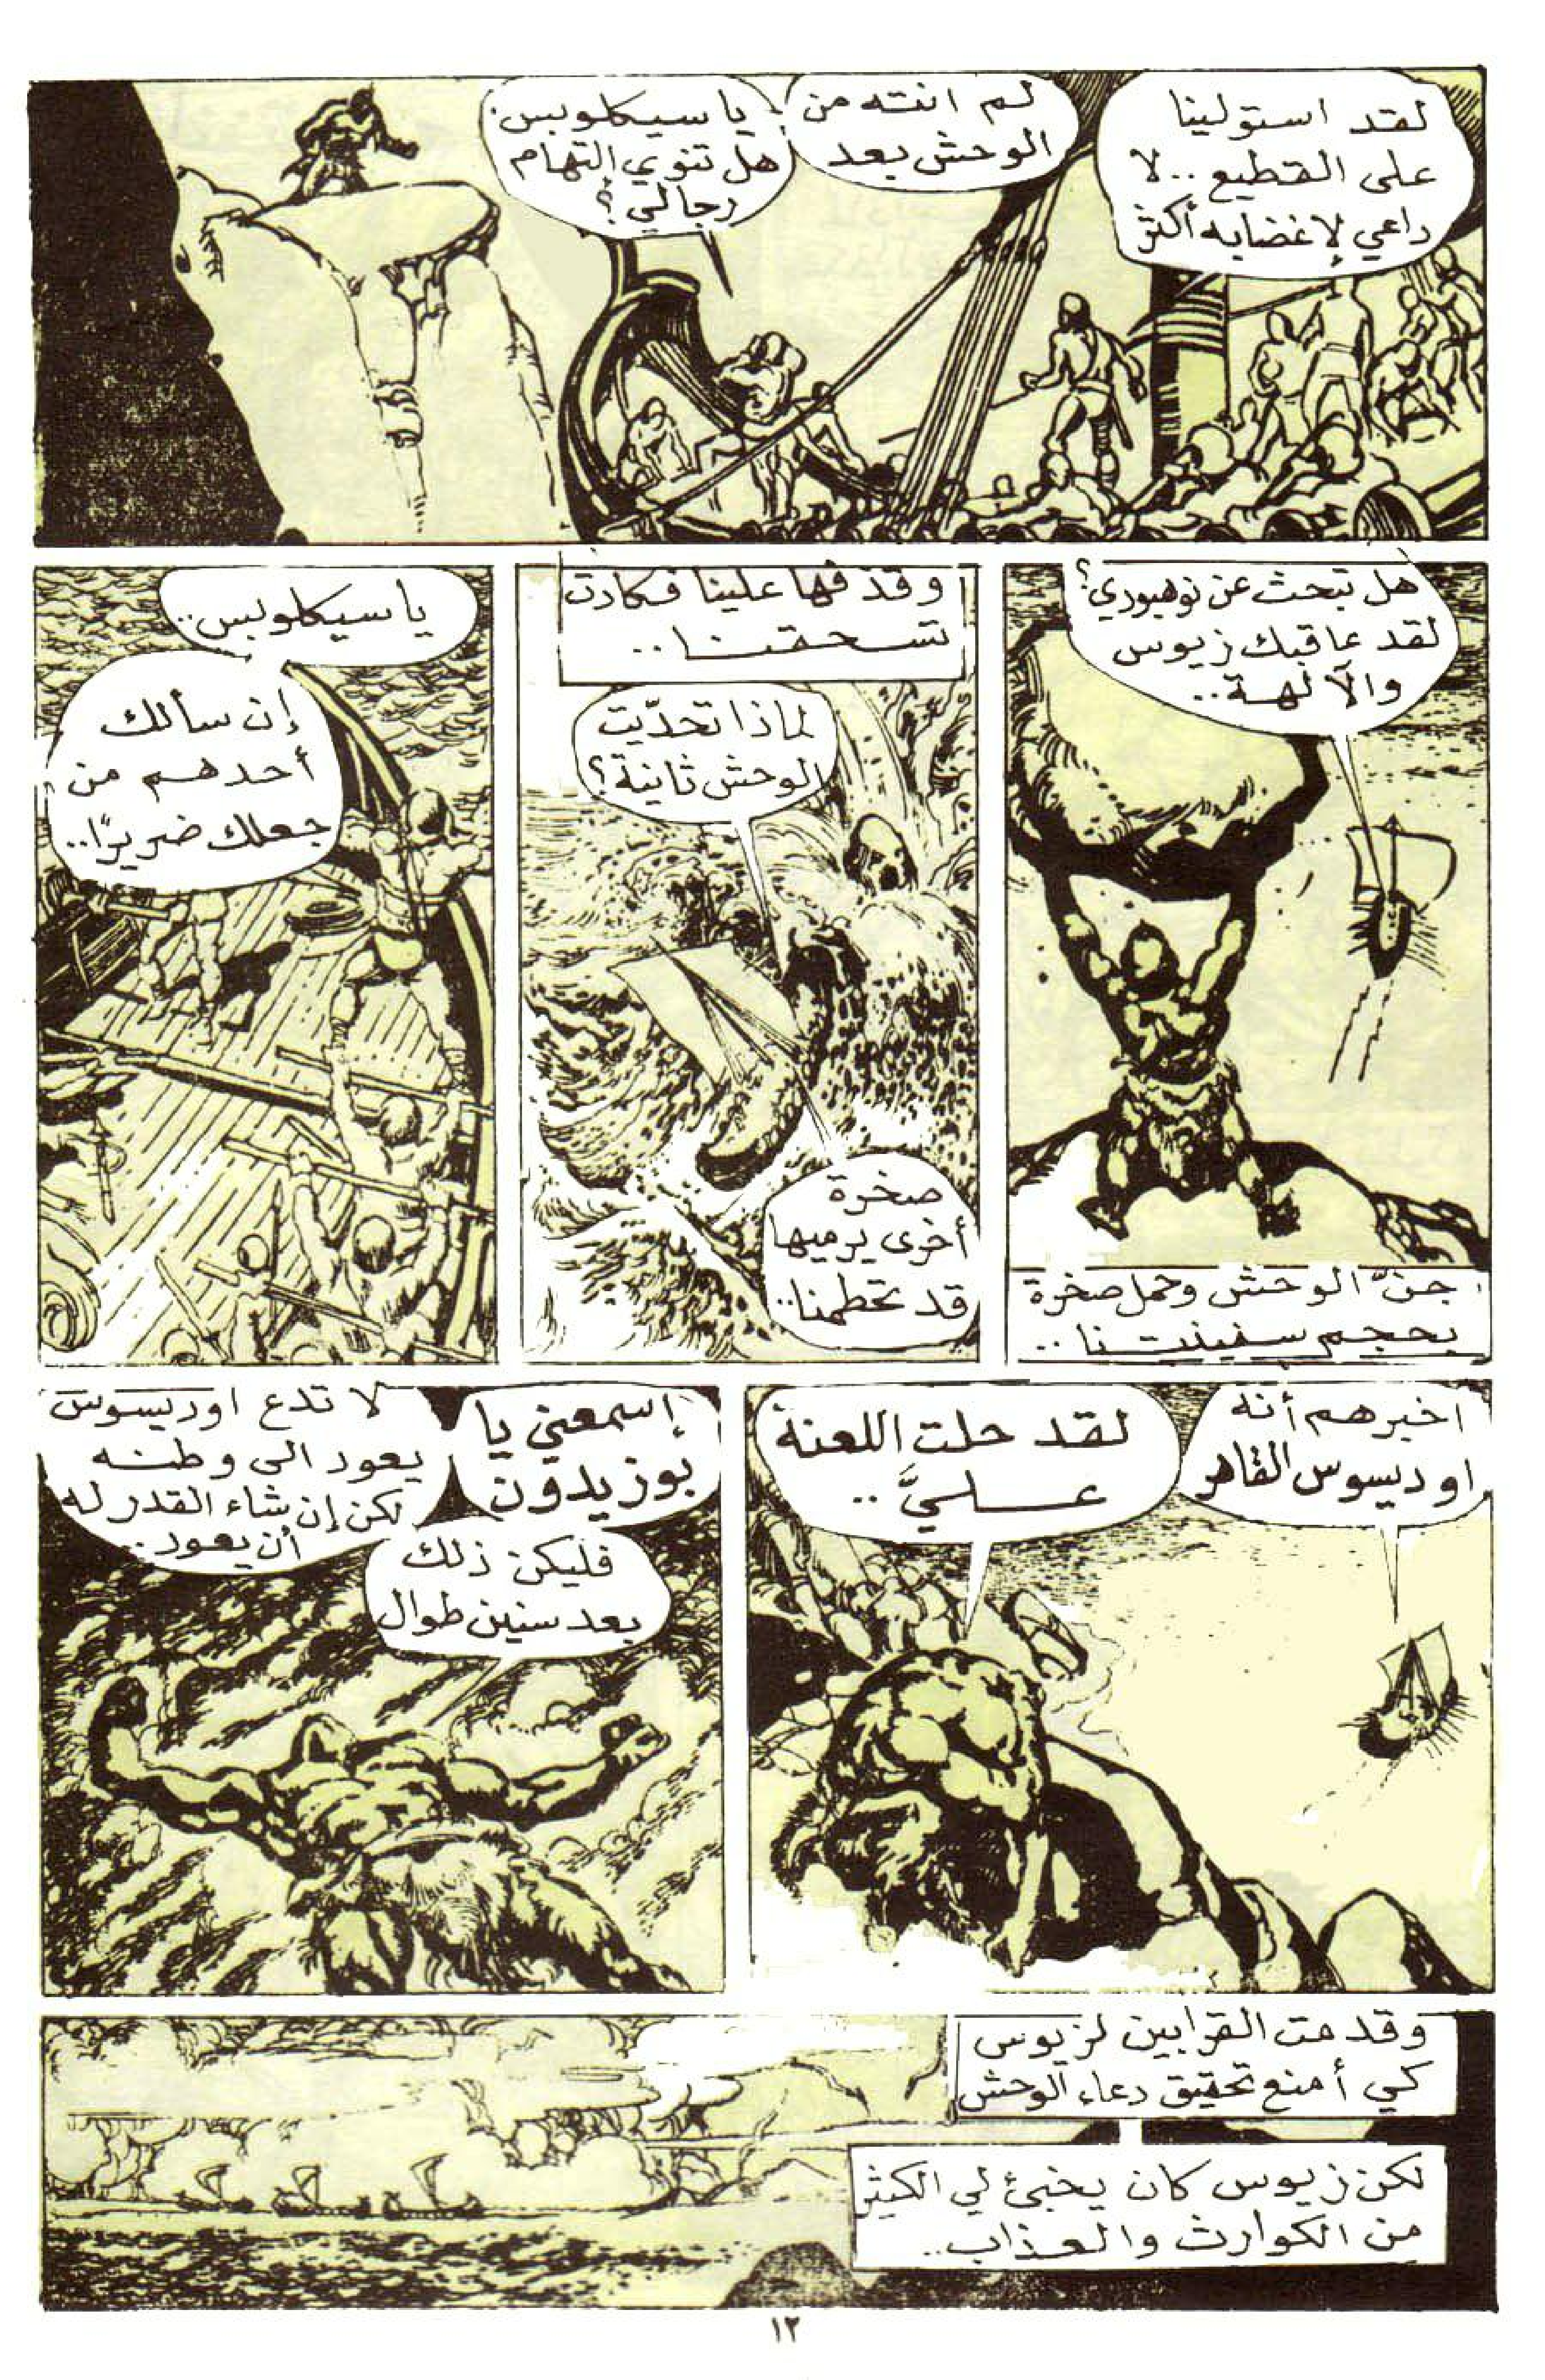 لقد استولينا
على القطيع.. لا
داعي لإغضابه أكثر
لم انته من
الوحش بعد
يا سيكلوبس.
هل تنوي إلتهام
رجالي؟
هل تبحث عن نوهبودي؟
لقد عاقبك زيوس
والآلهة..
جنّ الوحش وحمل صخرة
بحجم سفينتنا..
وقذفها علينا فكادت
تسحقنا..
لماذا تحدّيت
الوحش ثانية؟
صخرة
أخرى يرميها
قد تحطمنا..
يا سيكلوبس..
إن سألك
أحدهم من
جعلك ضريرًا..
اخبرهم أنه
اوديسوس القاهر
لقد حلت اللعنة
عليَّ..
إسمعني يا
بوزيدون
لا تدع اوديسوس
يعود الى وطنه
لكن إن شاء القدر له
أن يعود..
فليكن ذلك
بعد سنين طوال
وقدمت القرابين لزيوس
كي أمنع تحقيق دعاء الوحش
لكن زيوس كان يخبئ لي الكثير
من الكوارث والعذاب..
١٢